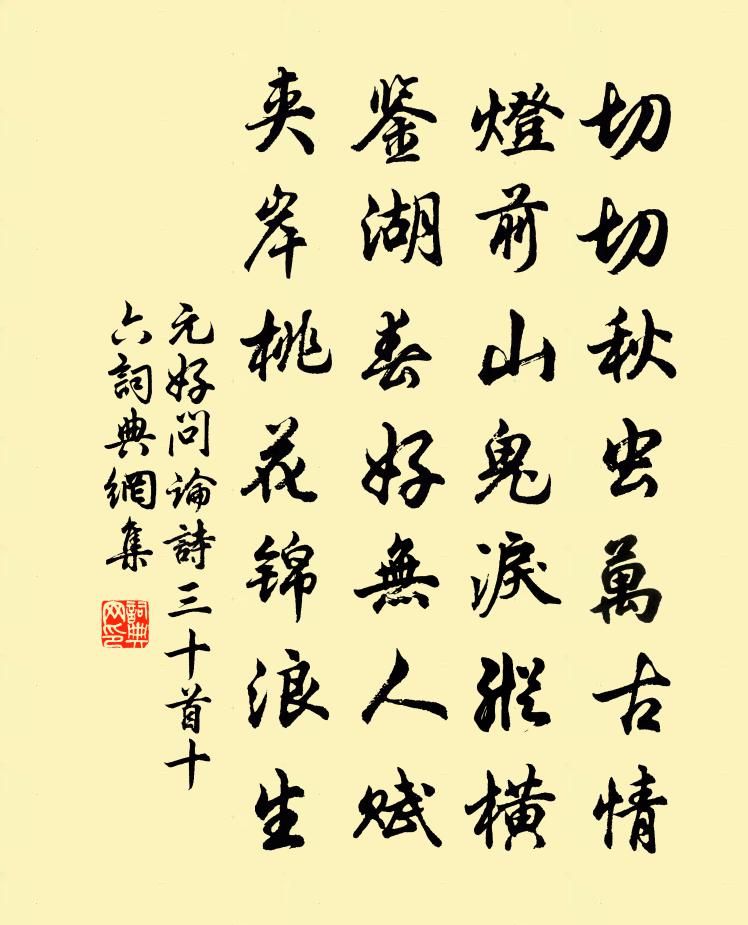 切切秋虫萬古情
燈前山鬼淚縱橫
鉴湖春好無人赋
夹岸桃花锦浪生
元好問論詩三十首十
六詞典網集
詞典网印